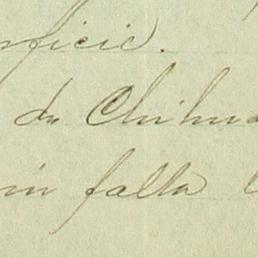 rficie.
de Chihua
in falta